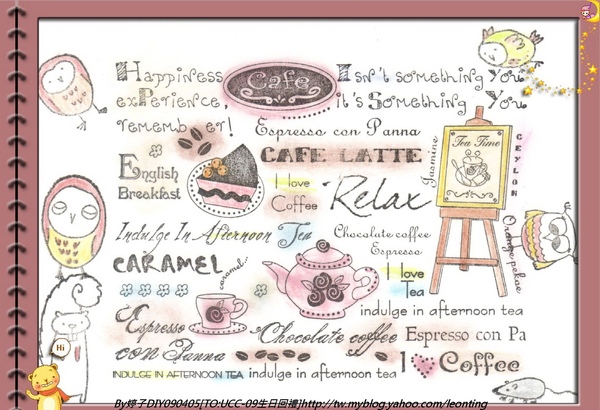 Happiness Cafe Isn't something you
exPerience, it's Something You
rememb er!
Espresso con Panna
CAFE LATTE
Jasmine
Tea Time
CEYLON
English
Breakfast
I love
Coffee
Relax
Orange pekoe
Indulge In Afternoon Tea
Chocolate coffee
Espresso
CARAMEL
caramel...
I love
Tea
indulge in afternoon tea
Espresso
con Panna
Chocolate coffee
Espresso con Pa
Hi
I Coffee
INDULGE IN AFTERNOON TEA
indulge in afternoon tea
By婷子DIY090405{TO:UCC-09生日回禮}http://tw.myblog.yahoo.com/leonting